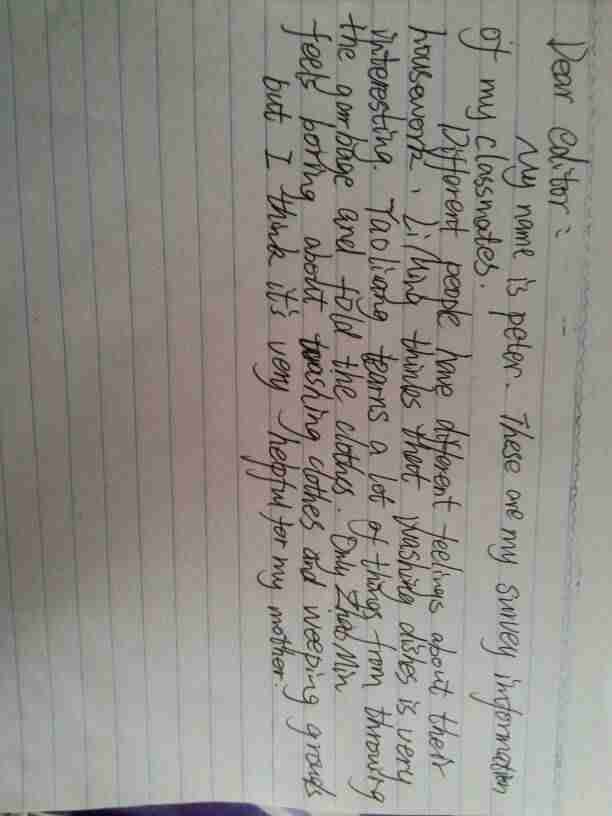 Dear editor:
My name is peter. These are my survey information
of my classmates.
Different people have different feelings about their
housework, Li Ming thinks that washing dishes is very
interesting. Yaoliang learns a lot of things from throwing
the garbage and fold the clothes. Only Zhao Min
feels boring about washing clothes and weeping grounds
but I think it's very helpful for my mother.